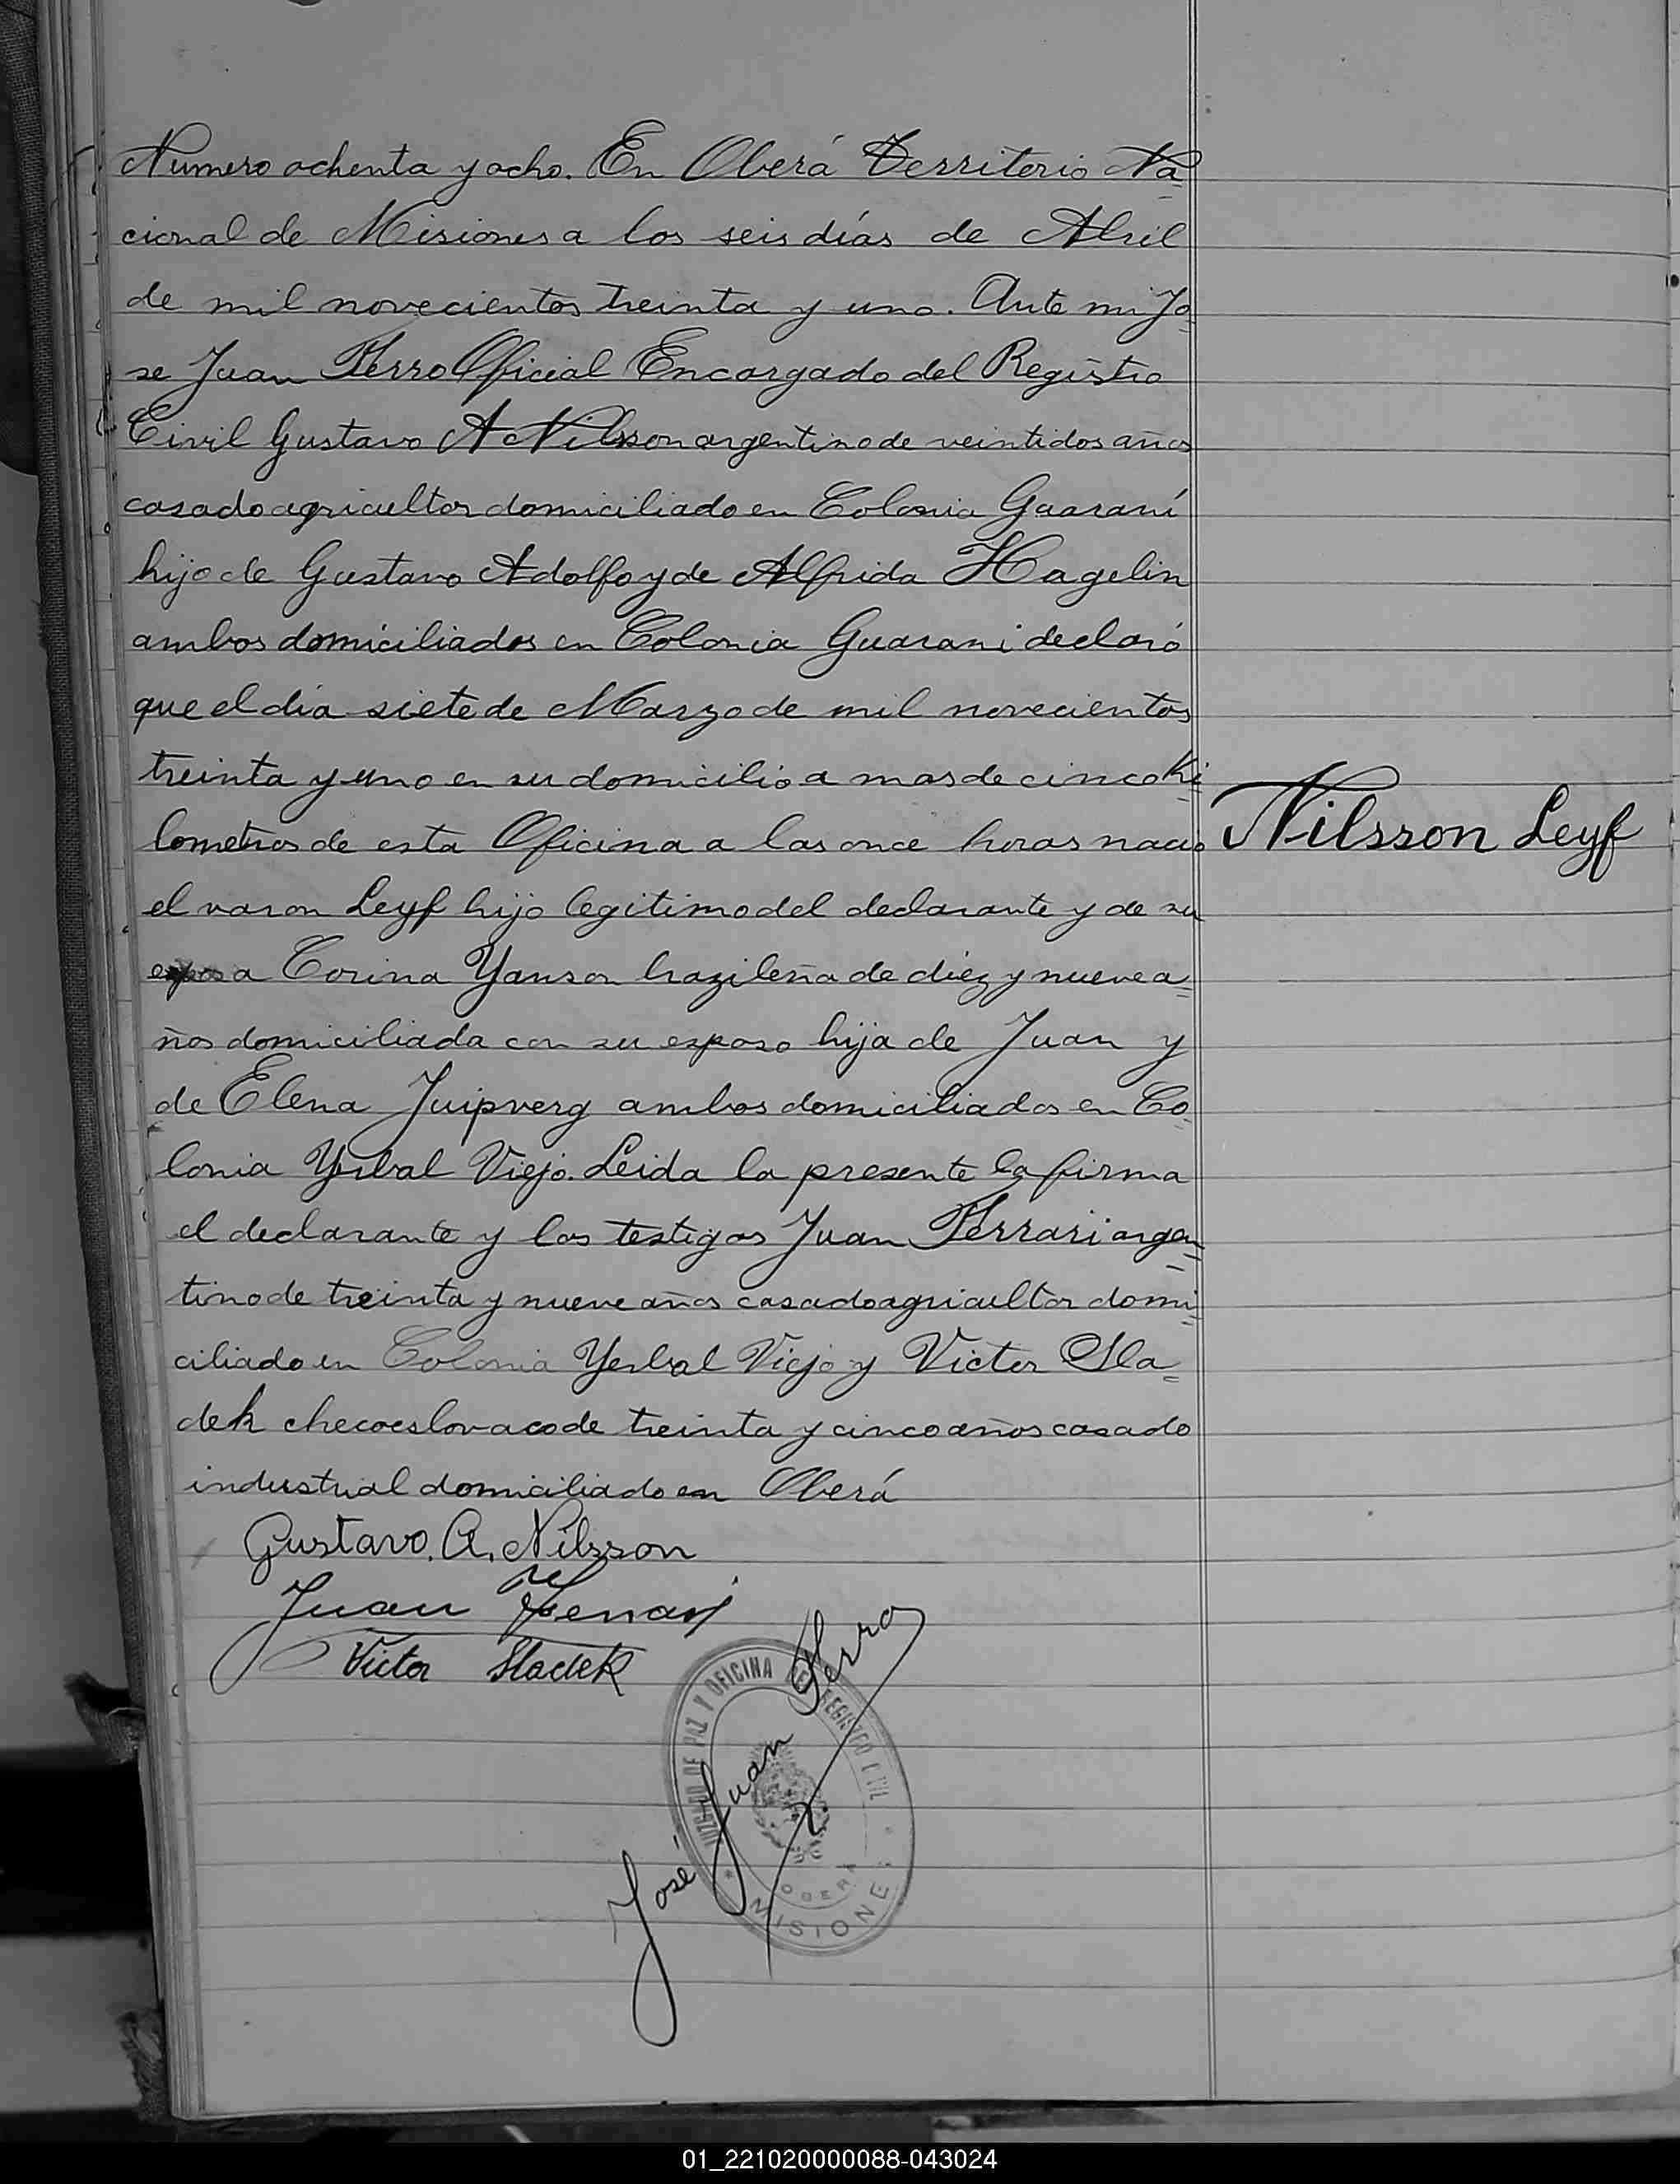 Numero ochenta y ocho. En Oberá Territorio Na
cional de Misiones a los seis días de Abril
de mil novecientos treinta y uno. Ante mi Jo
se Juan Ferro Oficial Encargado del Registro
Civil Gustavo A Nilsson argentino de veintidos años
casado agricultor domiciliado en Colonia Guaraní
hijo de Gustavo Adolfo y de Alfrida Hagelin
ambos domiciliados en Colonia Guarani declaró
que el día siete de Marzo de mil novecientos
treinta y uno en su domicilio a mas de cinco ki
lometros de esta Oficina a las once horas nacio
Nilsson Leyf
el varon Leyf hijo legitimo del declarante y de su
esposa Corina Yanson brazileña de diez y nueve a
ños domiciliada con su esposo hija de Juan y
de Elena Juipverg ambos domiciliados en Co
lonia Yerbal Viejo. Leida la presente la firma
el declarante y los testigos Juan Ferrari argen
tino de treinta y nueve años casado agricultor domi
ciliado en Colonia Yerbal Viejo y Victor Sla
dek checoeslovaco de treinta y cinco años casado
industrial domiciliado en Oberá
Gustavo. A. Nilsson
Juan Ferrari
Victor Sladek
José Juan Ferro
JUZGADO DE PAZ Y OFICINA DEL REGISTRO CIVIL
OBERA
MISIONES
01_221020000088-043024